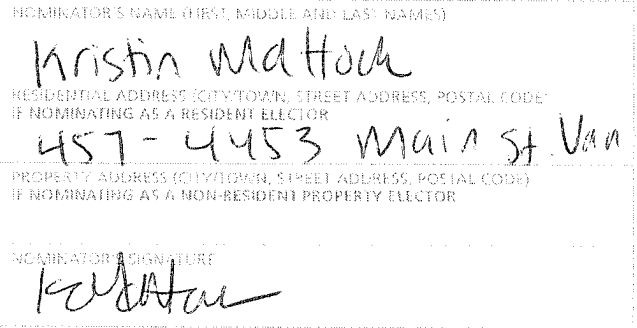 NOMINATOR'S NAME (FIRST, MIDDLE AND LAST NAMES)
Kristin Mattock
RESIDENTIAL ADDRESS (CITY/TOWN, STREET ADDRESS, POSTAL CODE)
IF NOMINATING AS A RESIDENT ELECTOR
457-4453 Main St. Van
PROPERTY ADDRESS (CITY/TOWN, STREET ADDRESS, POSTAL CODE)
IF NOMINATING AS A NON-RESIDENT PROPERTY ELECTOR
NOMINATOR'S SIGNATURE